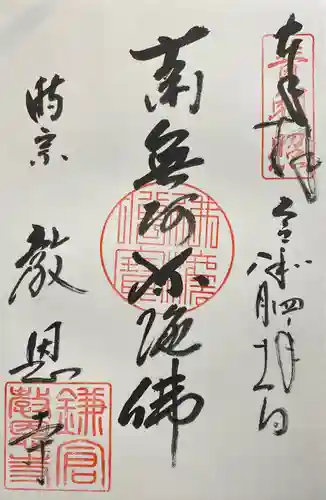 奉拝
令和四年
八月
南無阿弥陀佛
佛法僧寶
時宗
教恩寺
鎌倉
教恩寺